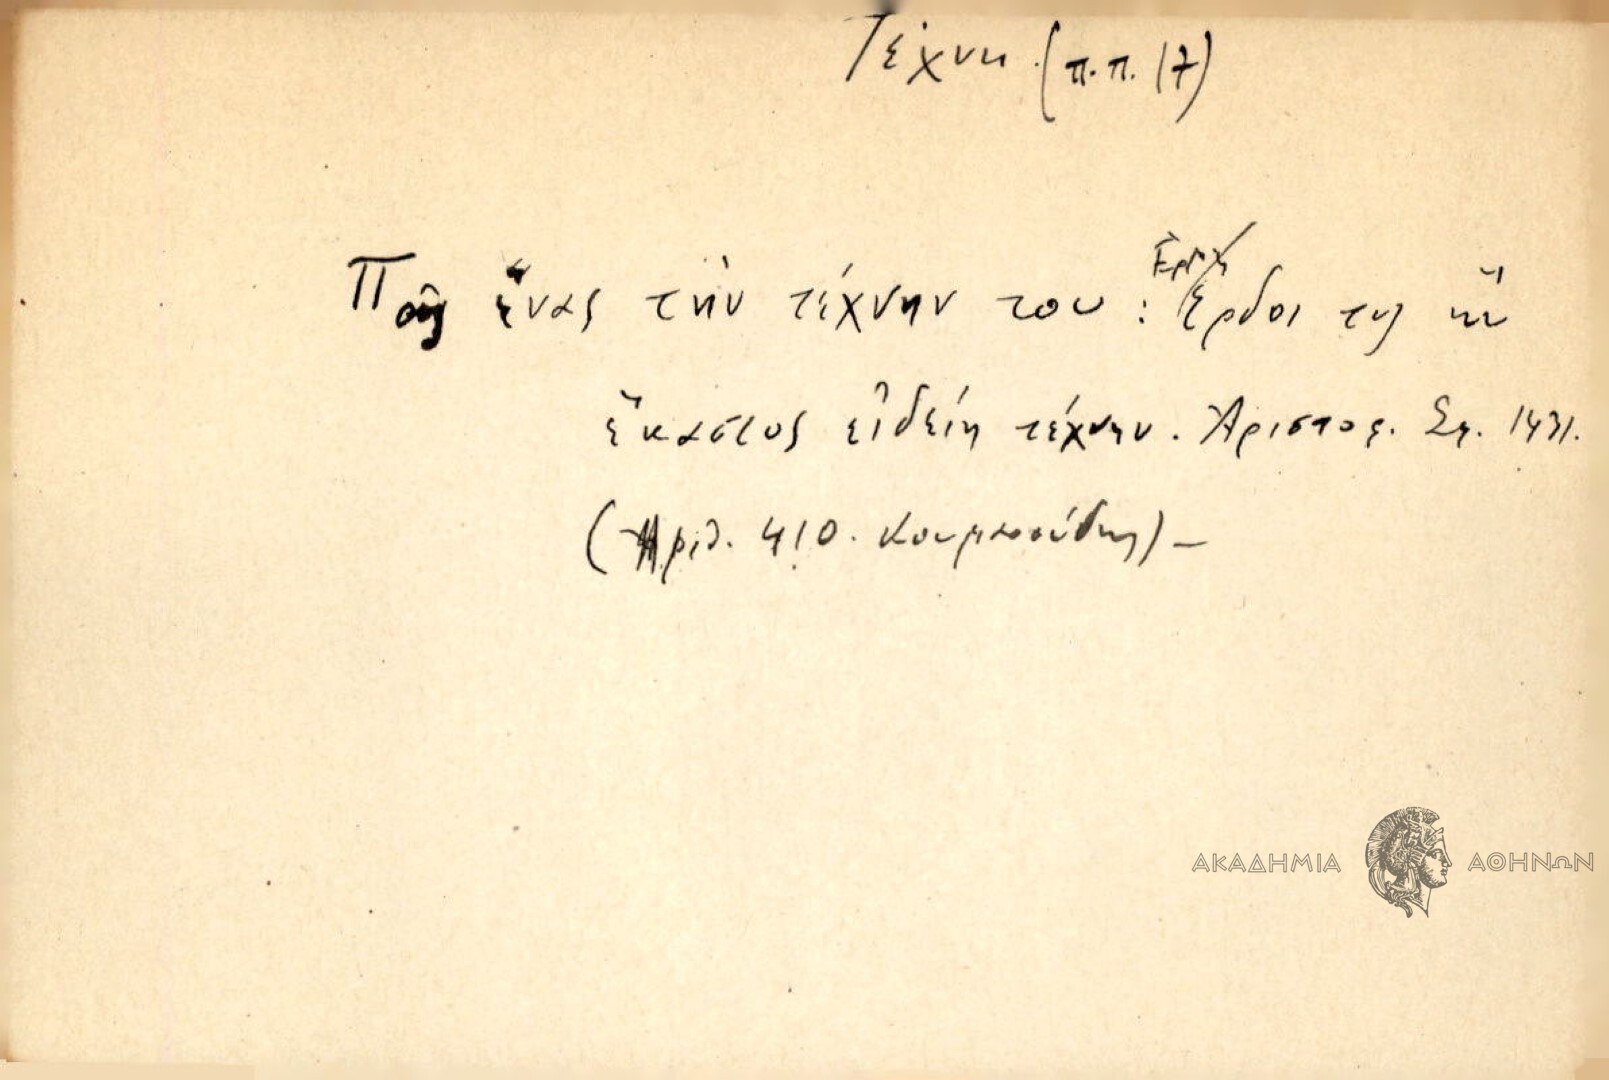 Τέχνη (π.π. 17)
Πᾶς ἕνας τὴν τέχνην του : Ἔρδοι τις ἣν
ἕκαστος εἰδείη τέχνην. Ἀριστοφ. Σφ. 1431.
(Ἀριθ. 410. Κουμανούδης) –
ΑΚΑΔΗΜΙΑ ΑΘΗΝΩΝ